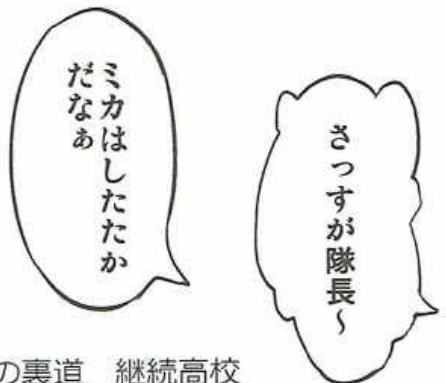 さっすが隊長〜
ミカはしたたか
だなぁ
の裏道　継続高校